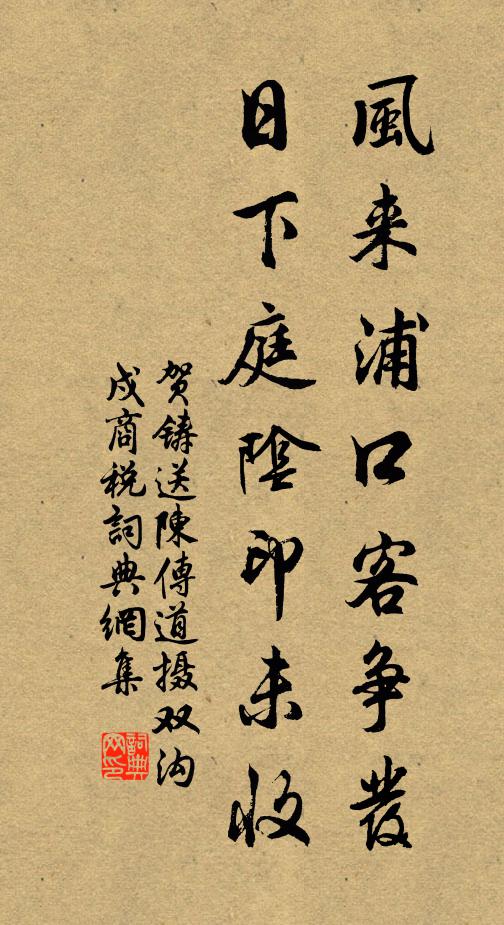 風来浦口客争發
日下庭陰印未收
贺铸送陳傳道摄双沟
戍商税詞典網集
詞典网印